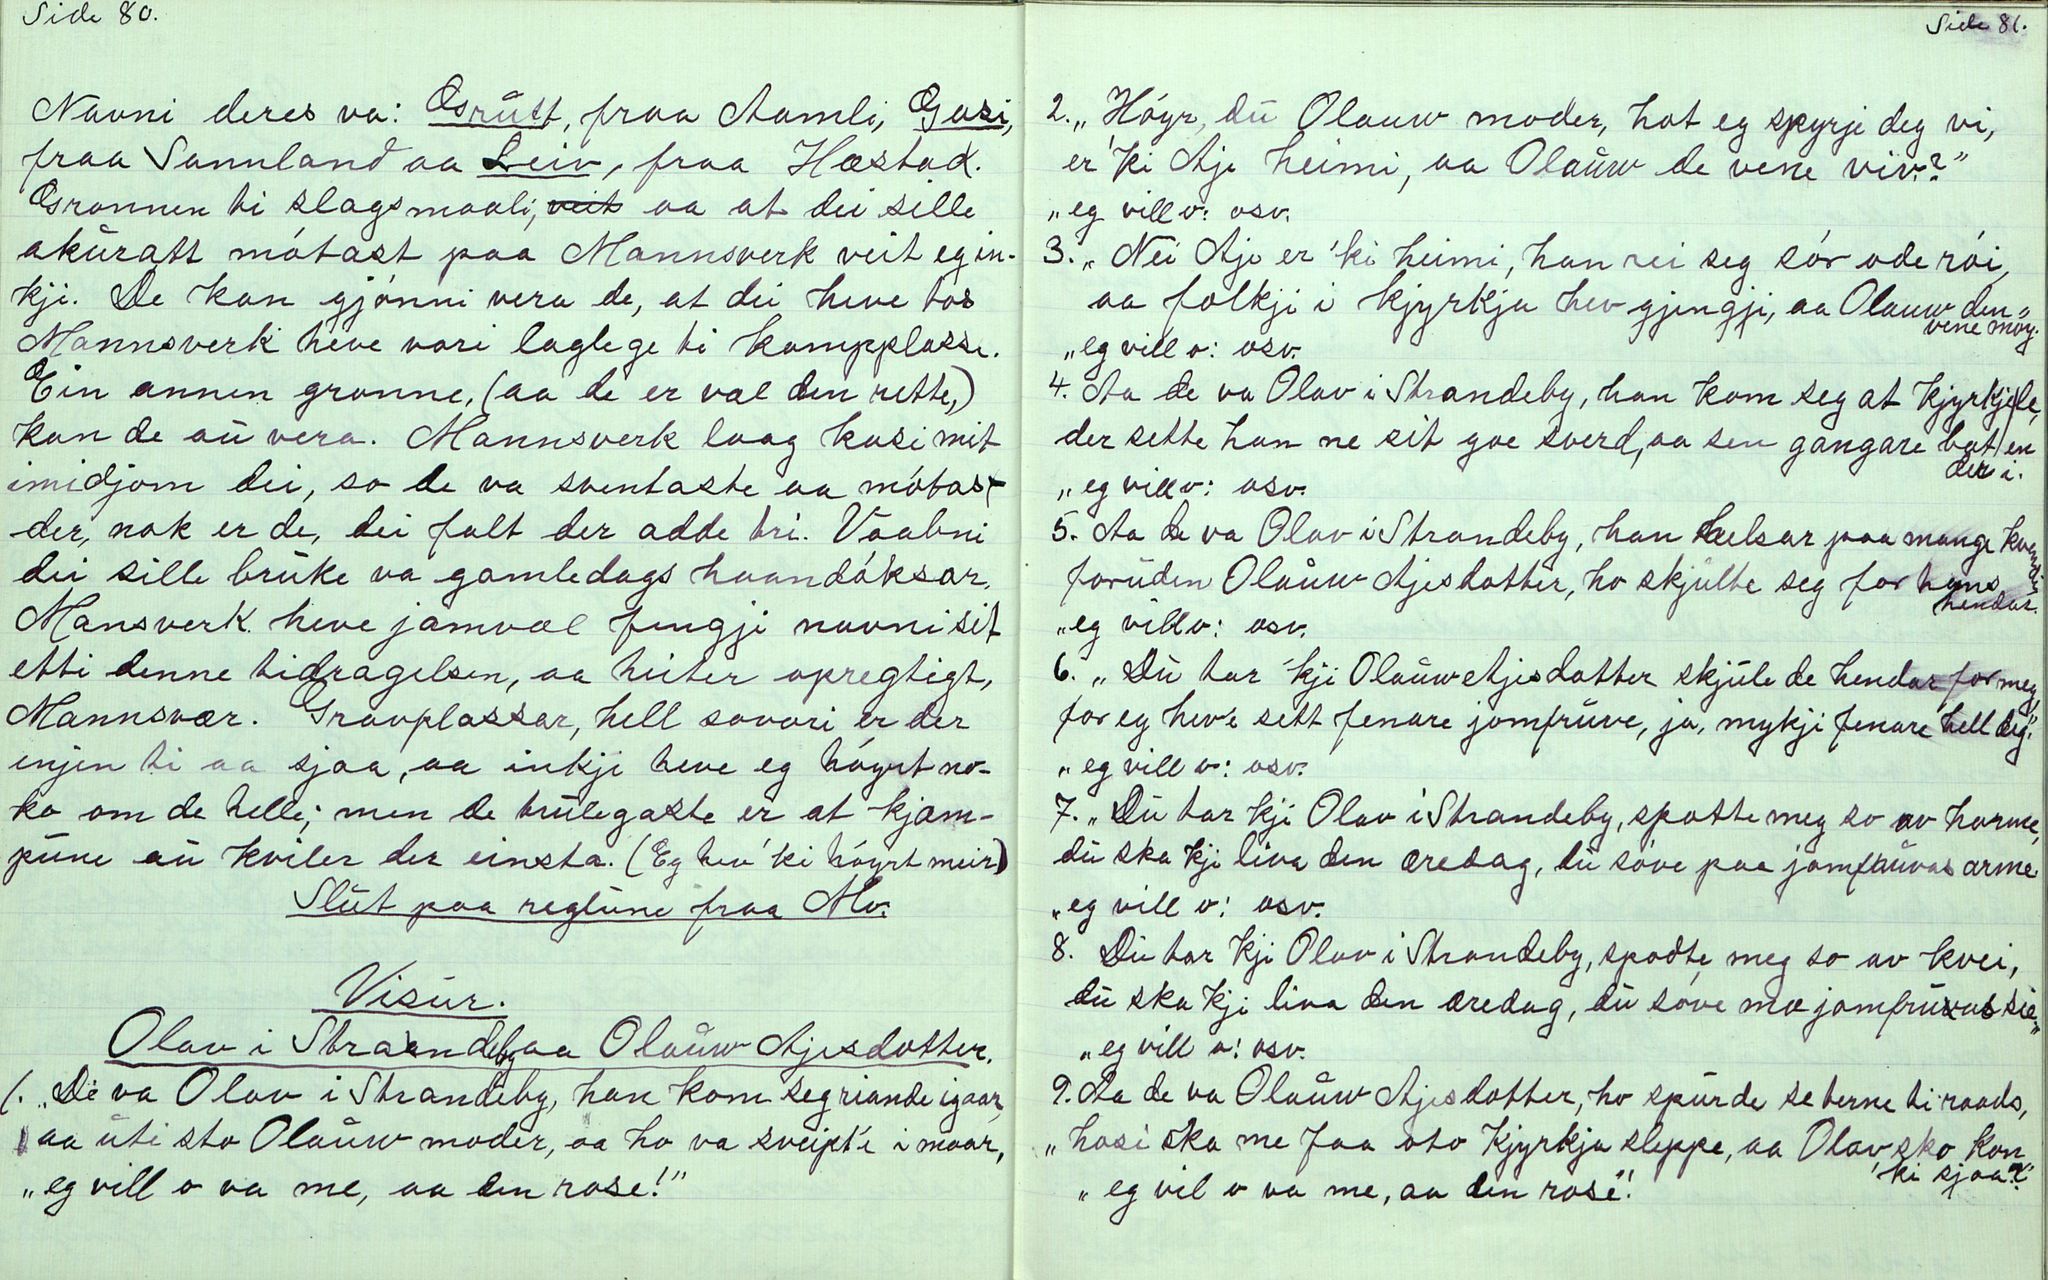 Side 80.
Navni deres va: Osrútt, fraa Aamli, Gasi,
fraa Sannland aa Leiv, fraa Hæstad.
Gronnen ti slagsmaali, veit aa at dei sille
akúratt mótast paa Mannsverk veit eg in-
kji. De kan gjónni vera de, at dei heve tos
Mannsverk heve vori laglege ti kampplasse.
Ein annen gronne, (aa de er val den rette,)
kan de aú vera. Mannsverk laag kasi mit
imidjom dei, so de va sventaste aa mótast
der, nok er de, dei falt der adde tri. Vaabni
dei sille brúke va gamledags haandóksar.
Mansverk heve jamval fengji navni sit
etti denne tidragelsen, aa heiter opregtigt,
Mannsvær. Gravplassar, hell sovori er der
injen ti aa sjaa, aa inkje heve eg hóyrt no-
ko om de helle; men de trúlegaste er at kjam-
púne aú kviler der einsta. (Eg hev'ki hóyrt meir)
Slút paa reglúne fraa Mv.
Visúr.
Olav i Strandeby aa Olaúw Ajesdotter.
1. „De va Olav i Strandeby, han kom seg riande igaar,
aa úti sto Olaúw moder, aa ho va sveipt'e i maar,
„eg vill o va me, aa den rose!"
Side 81.
2. „Hóyr, dú Olauw moder, hot eg spyrje deg vi,
er'ki Aje heimi, aa Olaúw de vene viv?"
„eg vill o: osv.
3. „Nei Aje er'ki heimi, han rei seg sór ode rói,
aa folkji i kjyrkja hev gjengji, aa Olauw den
vene móy."
„eg vill o: osv.
4. Aa de va Olav i Strandeby, han kom seg at kjyrkjele,
der sette han ne sit goe sverd, aa sen gangare bat en
der i.
„eg vill o: osv.
5. Aa de va Olav i Strandeby, han helsar paa mange kvendin
forúden Olaúw Ajesdotter, ho skjúlte seg for hans
hendar.
„eg vill o: osv.
6. „Dú tar 'kji Olaúw Ajesdotter skjúle de hendar for meg,
for eg heve sett fenare jomfrúve, ja, mykji fenare hell deg."
„eg vill o: osv.
7. „Dú tar kji Olav i Strandeby, spotte meg so av harme,
dú ska kji liva den æredag, dú sóve paa jomfrúvas arme.
„eg vill o: osv.
8. Dú tar kji Olav i Strandeby, spodte meg so av kvei,
dú ska kji liva den æredag, dú sóve mæ jomfrúvas sie"
„eg vill o: osv.
9. Aa de va Olaúw Ajesdotter, ho spúrde se terne ti raads,
„hosi ska me faa oto kjyrkja sleppe, aa Olav sko kon
'ki sjaa?"
„eg vil o va me, aa den rose"!